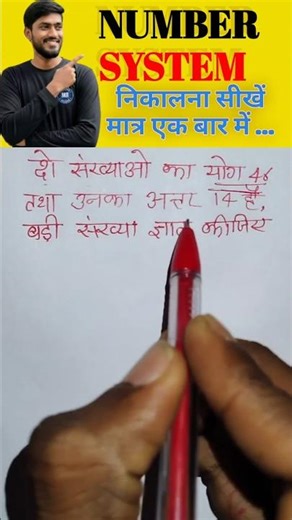 NUMBER
SYSTEM
निकालना सीखें
मात्र एक बार में ...
दो संख्याओ का योग 46
तथा उनका अन्तर 14 है,
बड़ी संख्या ज्ञात कीजिए